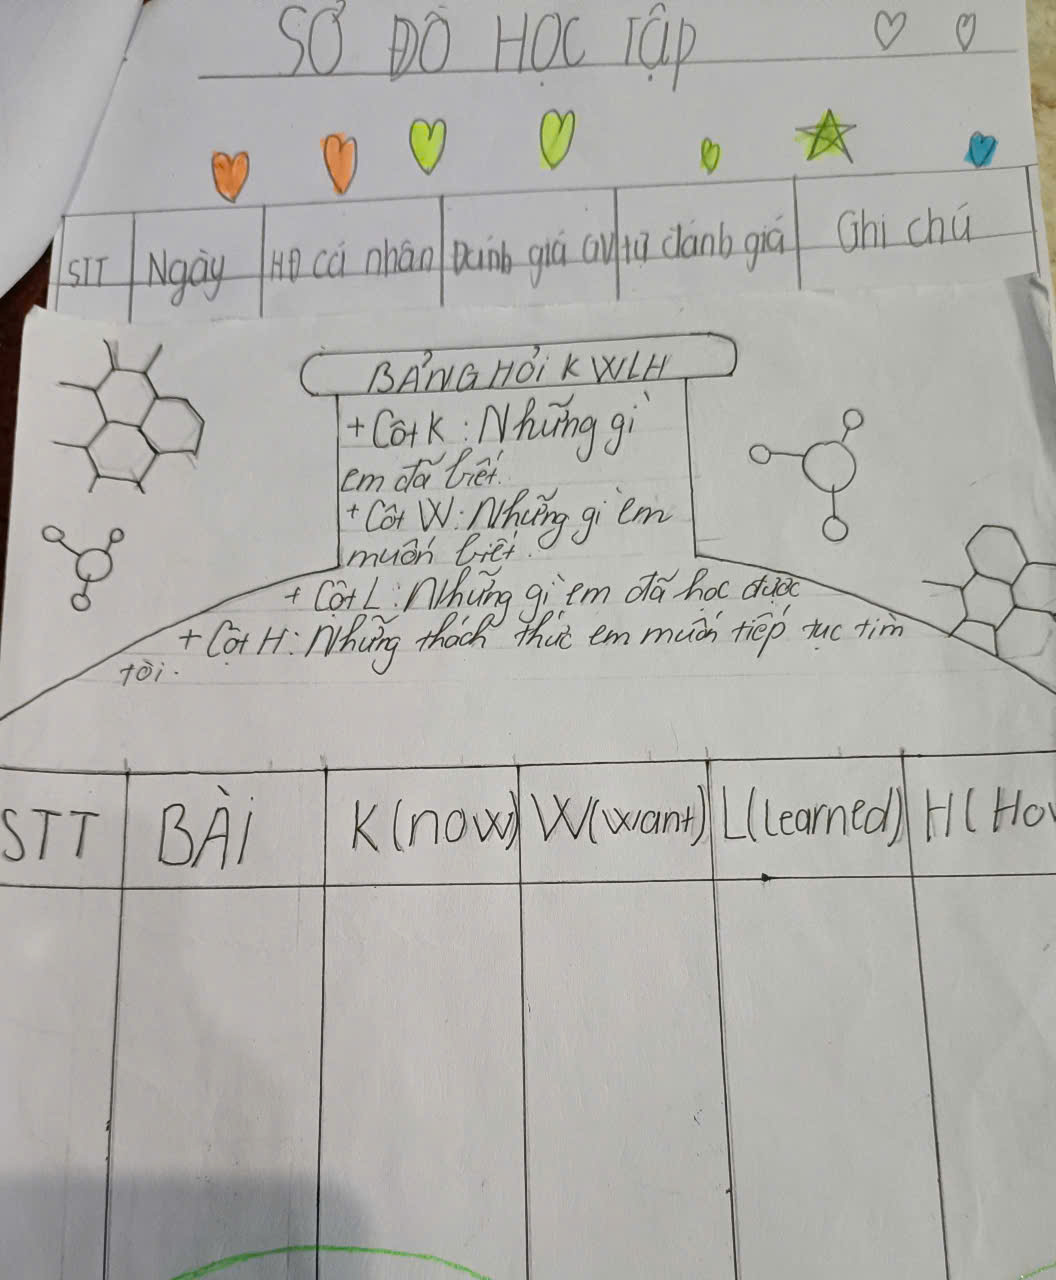 SƠ ĐỒ HỌC TẬP
STT Ngày HĐ cá nhân Đánh giá GV tự đánh giá Ghi chú
BẢNG HỎI KWLH
+ Cột K : Những gì
em đã biết.
+ Cột W : Những gì em
muốn biết.
+ Cột L : Những gì em đã học được
+ Cột H : Những thách thức em muốn tiếp tục tìm
tòi.
STT BÀI K(now) W(want) L(learned) H(How